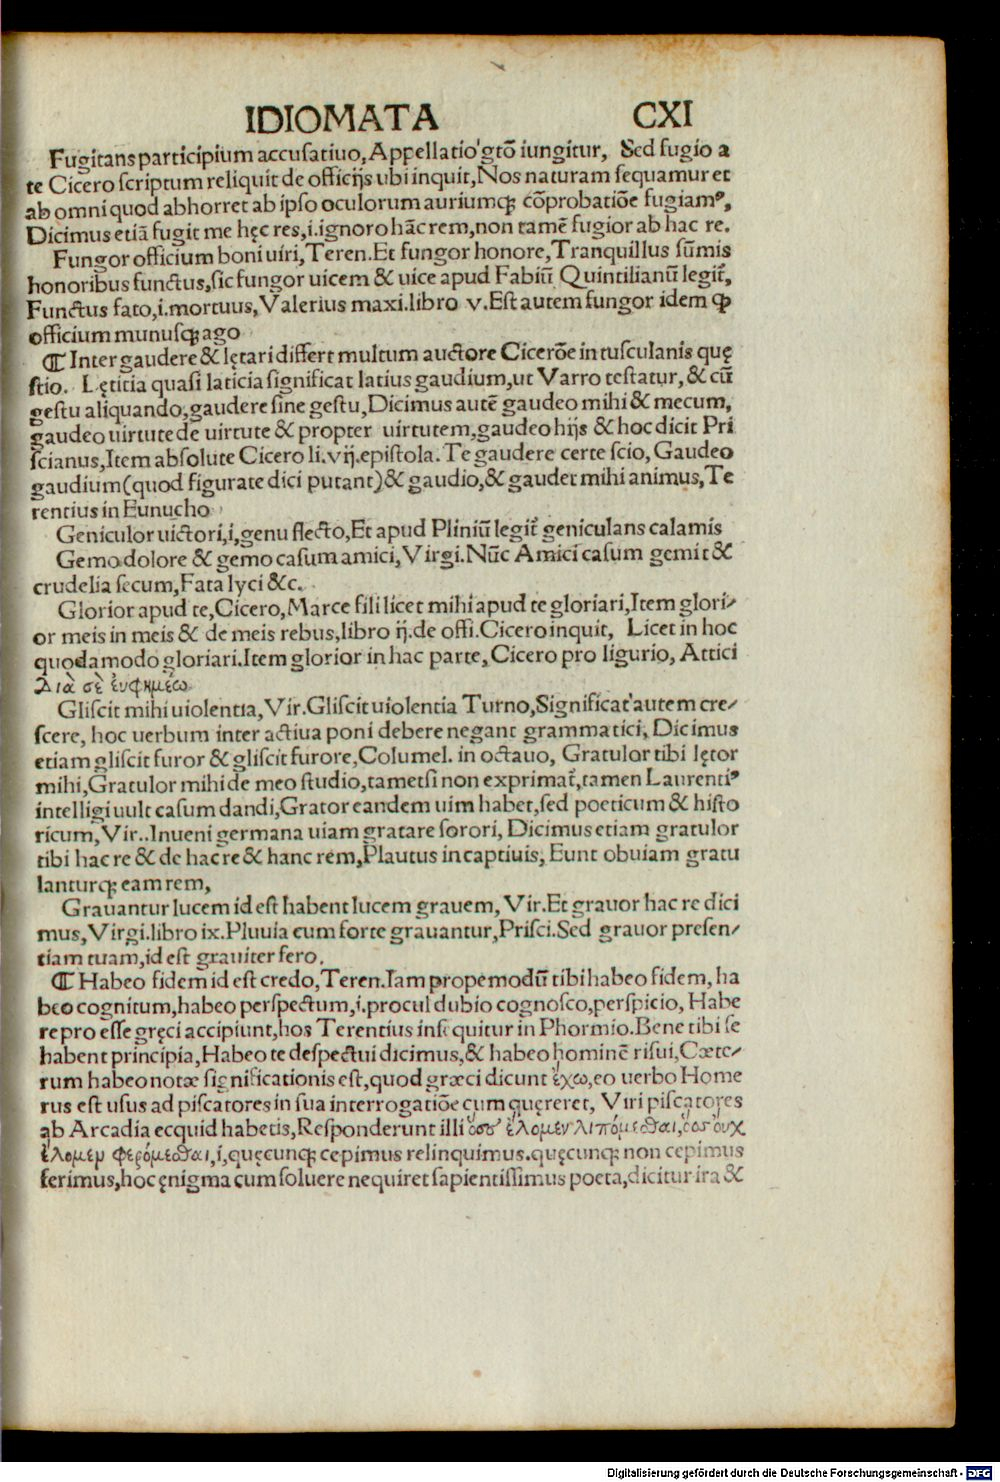 IDIOMATA CXI
Fugitans participium accusatiuo, Appellatio gtō iungitur, Sed fugio a
te Cicero scriptum reliquit de officijs ubi inquit, Nos naturam sequamur et
ab omni quod abhorret ab ipso oculorum auriumqꝫ cōprobatiōe fugiamꝰ,
Dicimus etiā fugit me hęc res, i. ignoro hāc rem, non tamē fugior ab hac re.
Fungor officium boni uiri, Teren. Et fungor honore, Tranquillus sūmis
honoribus functus, sic fungor uicem & uice apud Fabiū Quintilianū legit̃,
Functus fato, i. mortuus, Valerius maxi. libro v. Est autem fungor idem ꝙ
officium munusqꝫ ago
¶ Inter gaudere & lętari differt multum auctore Cicerōe in tusculanis quę
stio. Lętitia quasi laticia significat latius gaudium, ut Varro testatur, & cū
gestu aliquando, gaudere sine gestu, Dicimus autē gaudeo mihi & mecum,
gaudeo uirtute de uirtute & propter uirtutem, gaudeo hijs & hoc dicit Pri
scianus, Item absolute Cicero li. vij. epistola. Te gaudere certe scio, Gaudeo
gaudium (quod figurate dici putant) & gaudio, & gaudet mihi animus, Te
rentius in Eunucho
Geniculor uictori, i, genu flecto, Et apud Pliniū legit̃ geniculans calamis
Gemo dolore & gemo casum amici, Virgi. Nūc Amici casum gemit &
crudelia secum, Fata lyci &c.
Glorior apud te, Cicero, Marce fili licet mihi apud te gloriari, Item glori⸗
or meis in meis & de meis rebus, libro ij. de offi. Cicero inquit, Licet in hoc
quodamodo gloriari. Item glorior in hac parte, Cicero pro ligurio, Attici
διὰ σὲ ἐυφημέω
Gliscit mihi uiolentia, Vir. Gliscit uiolentia Turno, Significat autem cre⸗
scere, hoc uerbum inter actiua poni debere negant grammatici, Dicimus
etiam gliscit furor & gliscit furore, Columel. in octauo, Gratulor tibi lętor
mihi, Gratulor mihi de meo studio, tametsi non exprimat̃, tamen Laurentiꝰ
intelligi uult casum dandi, Grator eandem uim habet, sed poeticum & histo
ricum, Vir.. Inueni germana uiam gratare sorori, Dicimus etiam gratulor
tibi hac re & de hac re & hanc rem, Plautus in captiuis, Eunt obuiam gratu
lanturqꝫ eam rem,
Grauantur lucem id est habent lucem grauem, Vir. Et grauor hac re dici
mus, Virgi. libro ix. Pluuia cum forte grauantur, Prisci. Sed grauor presen⸗
tiam tuam, id est grauiter fero.
¶ Habeo fidem id est credo, Teren. Iam propemodū tibi habeo fidem, ha
beo cognitum, habeo perspectum, i. procul dubio cognosco, perspicio, Habe
re pro esse gręci accipiunt, hos Terentius insequitur in Phormio. Bene tibi se
habent principia, Habeo te despectui dicimus, & habeo hominē risui, Cæte⸗
rum habeo notæ significationis est, quod græci dicunt ἐχω, eo uerbo Home
rus est usus ad piscatores in sua interrogatiōe cum quęreret, Viri piscatores
ab Arcadia ecquid habetis, Responderunt illi ὁσσ' ἑλομεν λιπόμεσθαι, ὁσσ' ουχ
ἑλομεν φερόμεσθαι, i, quęcunqꝫ cepimus relinquimus. quęcunqꝫ non cepimus
ferimus, hoc ęnigma cum soluere nequiret sapientissimus poeta, dicitur ira &
Digitalisierung gefördert durch die Deutsche Forschungsgemeinschaft - DFG